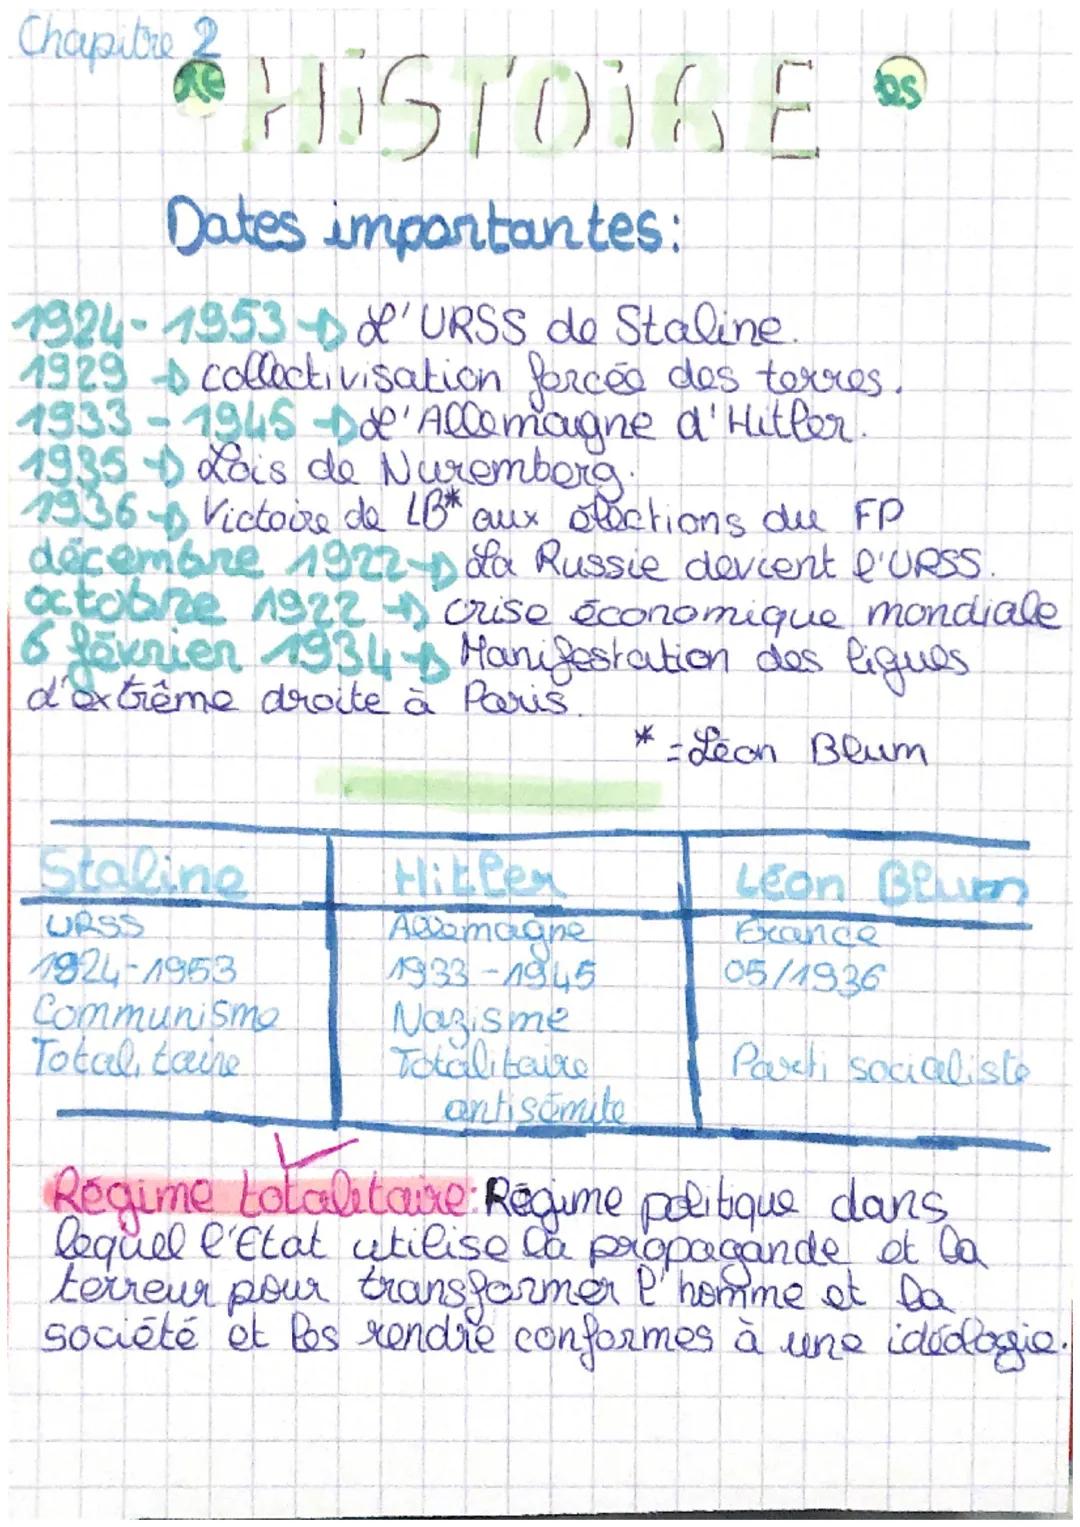 Chapitre 2
HiSTOiRE
Dates importantes:
1924-1953 → L'URSS de Staline.
1929 → collectivisation forcée des terres.
1933-1945 → L'Allemagne d'Hitler.
1935 → Lois de Nuremberg.
1936 → Victoire de LB* aux élections du FP
décembre 1922 → La Russie devient l'URSS.
octobre 1922 → crise économique mondiale
6 février 1934 → Manifestation des ligues
d'extrême droite à Paris.
* = Léon Blum
Staline Hitler Léon Blum
URSS Allemagne France
1924-1953 1933-1945 05/1936
Communisme Nazisme
Totalitaire Totalitaire Parti socialiste
antisémite
Régime totalitaire: Régime politique dans
lequel l'Etat utilise la propagande et la
terreur pour transformer l'homme et la
société et les rendre conformes à une idéologie.